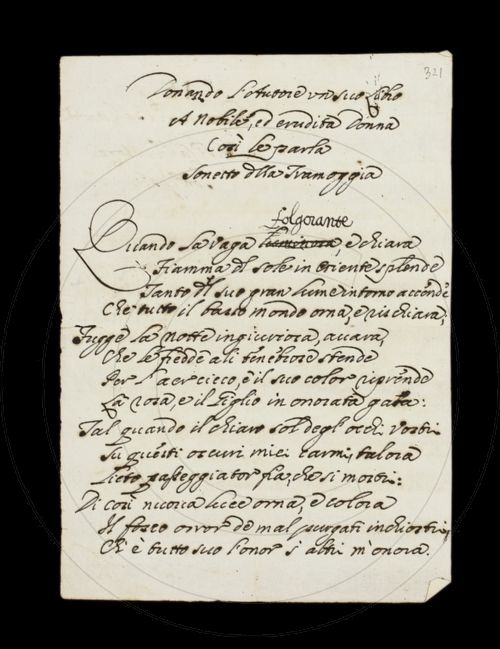 321
Donando l'Autore un suo Libro
A Nobile, ed erudita Donna
Così le parla
Sonetto dlla Tramoggia
folgorante
Quando la vaga luminosa, e chiara
Fiamma dl sole in Oriente splende
Tanto dl suo gran lume intorno accende
Che tutto il basso mondo orna, e rischiara;
Fugge la notte ingiuriosa, avara,
Che le fredde ali tenebrose stende
Per l'aer cieco, e il suo color riprende
La rosa, e il Giglio in onorata gara:
Tal quando il chiaro sol degl'occhi vostri
Su questi oscuri miei carmi talora
Lieto passeggiator fia, che si mostri:
Di così nuova luce orna, e colora
Il fosco orror de mal purgati inchiostri,
Ch'è tutto suo l'onor s'altri m'onora.